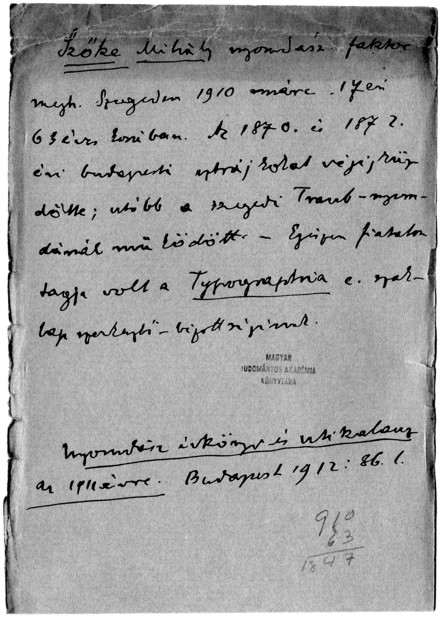 Szőke Mihály nyomdász faktor
megh. Szegeden 1910 márc. 17 én
63 éves korában. Az 1870. és 1872.
évi budapesti sztrájkokat végigküz-
dötte; utóbb a szegedi Traub-nyom-
dánál működött. – Egészen fiatalon
tagja volt a Typographia c. szak-
lap szerkesztő-bizottságának.
MAGYAR
TUDOMÁNYOS AKADÉMIA
KÖNYVTÁRA
Nyomdász évkönyv és utikalauz
az 1911 évre. Budapest 1912: 86. l.
910
63
1847